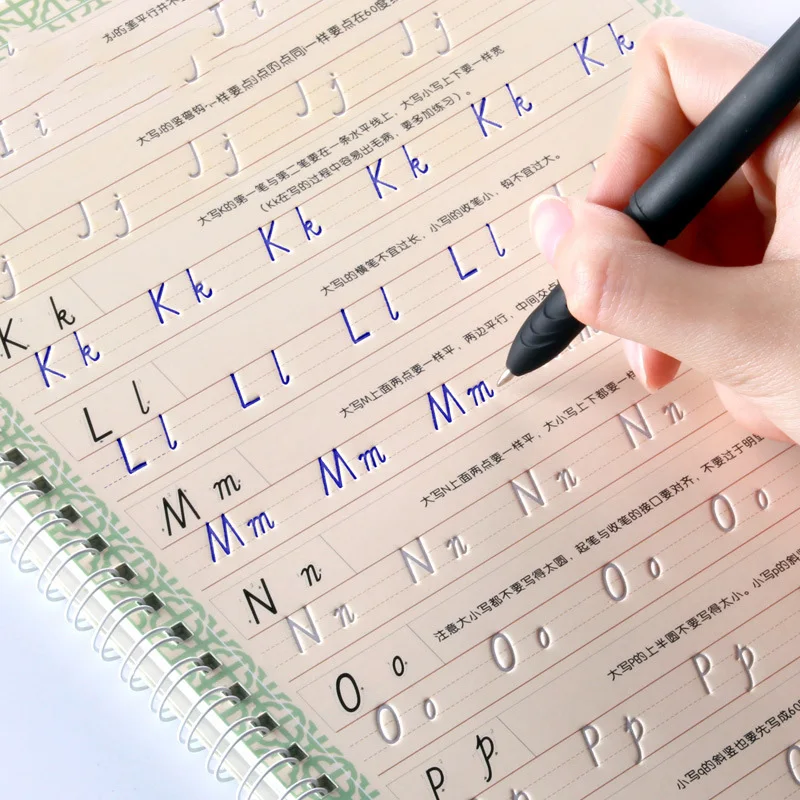 J j J j J j J j
大写K的第一笔与第二笔要在一条水平线上，大写小写上下要一样宽
（Kk在写的过程中容易出毛病，要多加练习）。
K k
K k K k K k K k K k K k
大写L的横笔不宜过长，小写l的收笔小，钩不宜过大。
L l
L l L l L l L l
大写M上面两点要一样平，两边平行，中间交点
M m
M m M m M m
大写N上面两点要一样平，大小写上下都要一样
N n
N n N n N n N n
注意大小写都不要写得太圆，起笔与收笔的接口要对齐，不要过于明显
O o
O o O o O o O o
大写P的上半圆不要写得太小。小写p的斜
P p
P p P p
小写q的斜竖也要先写成60